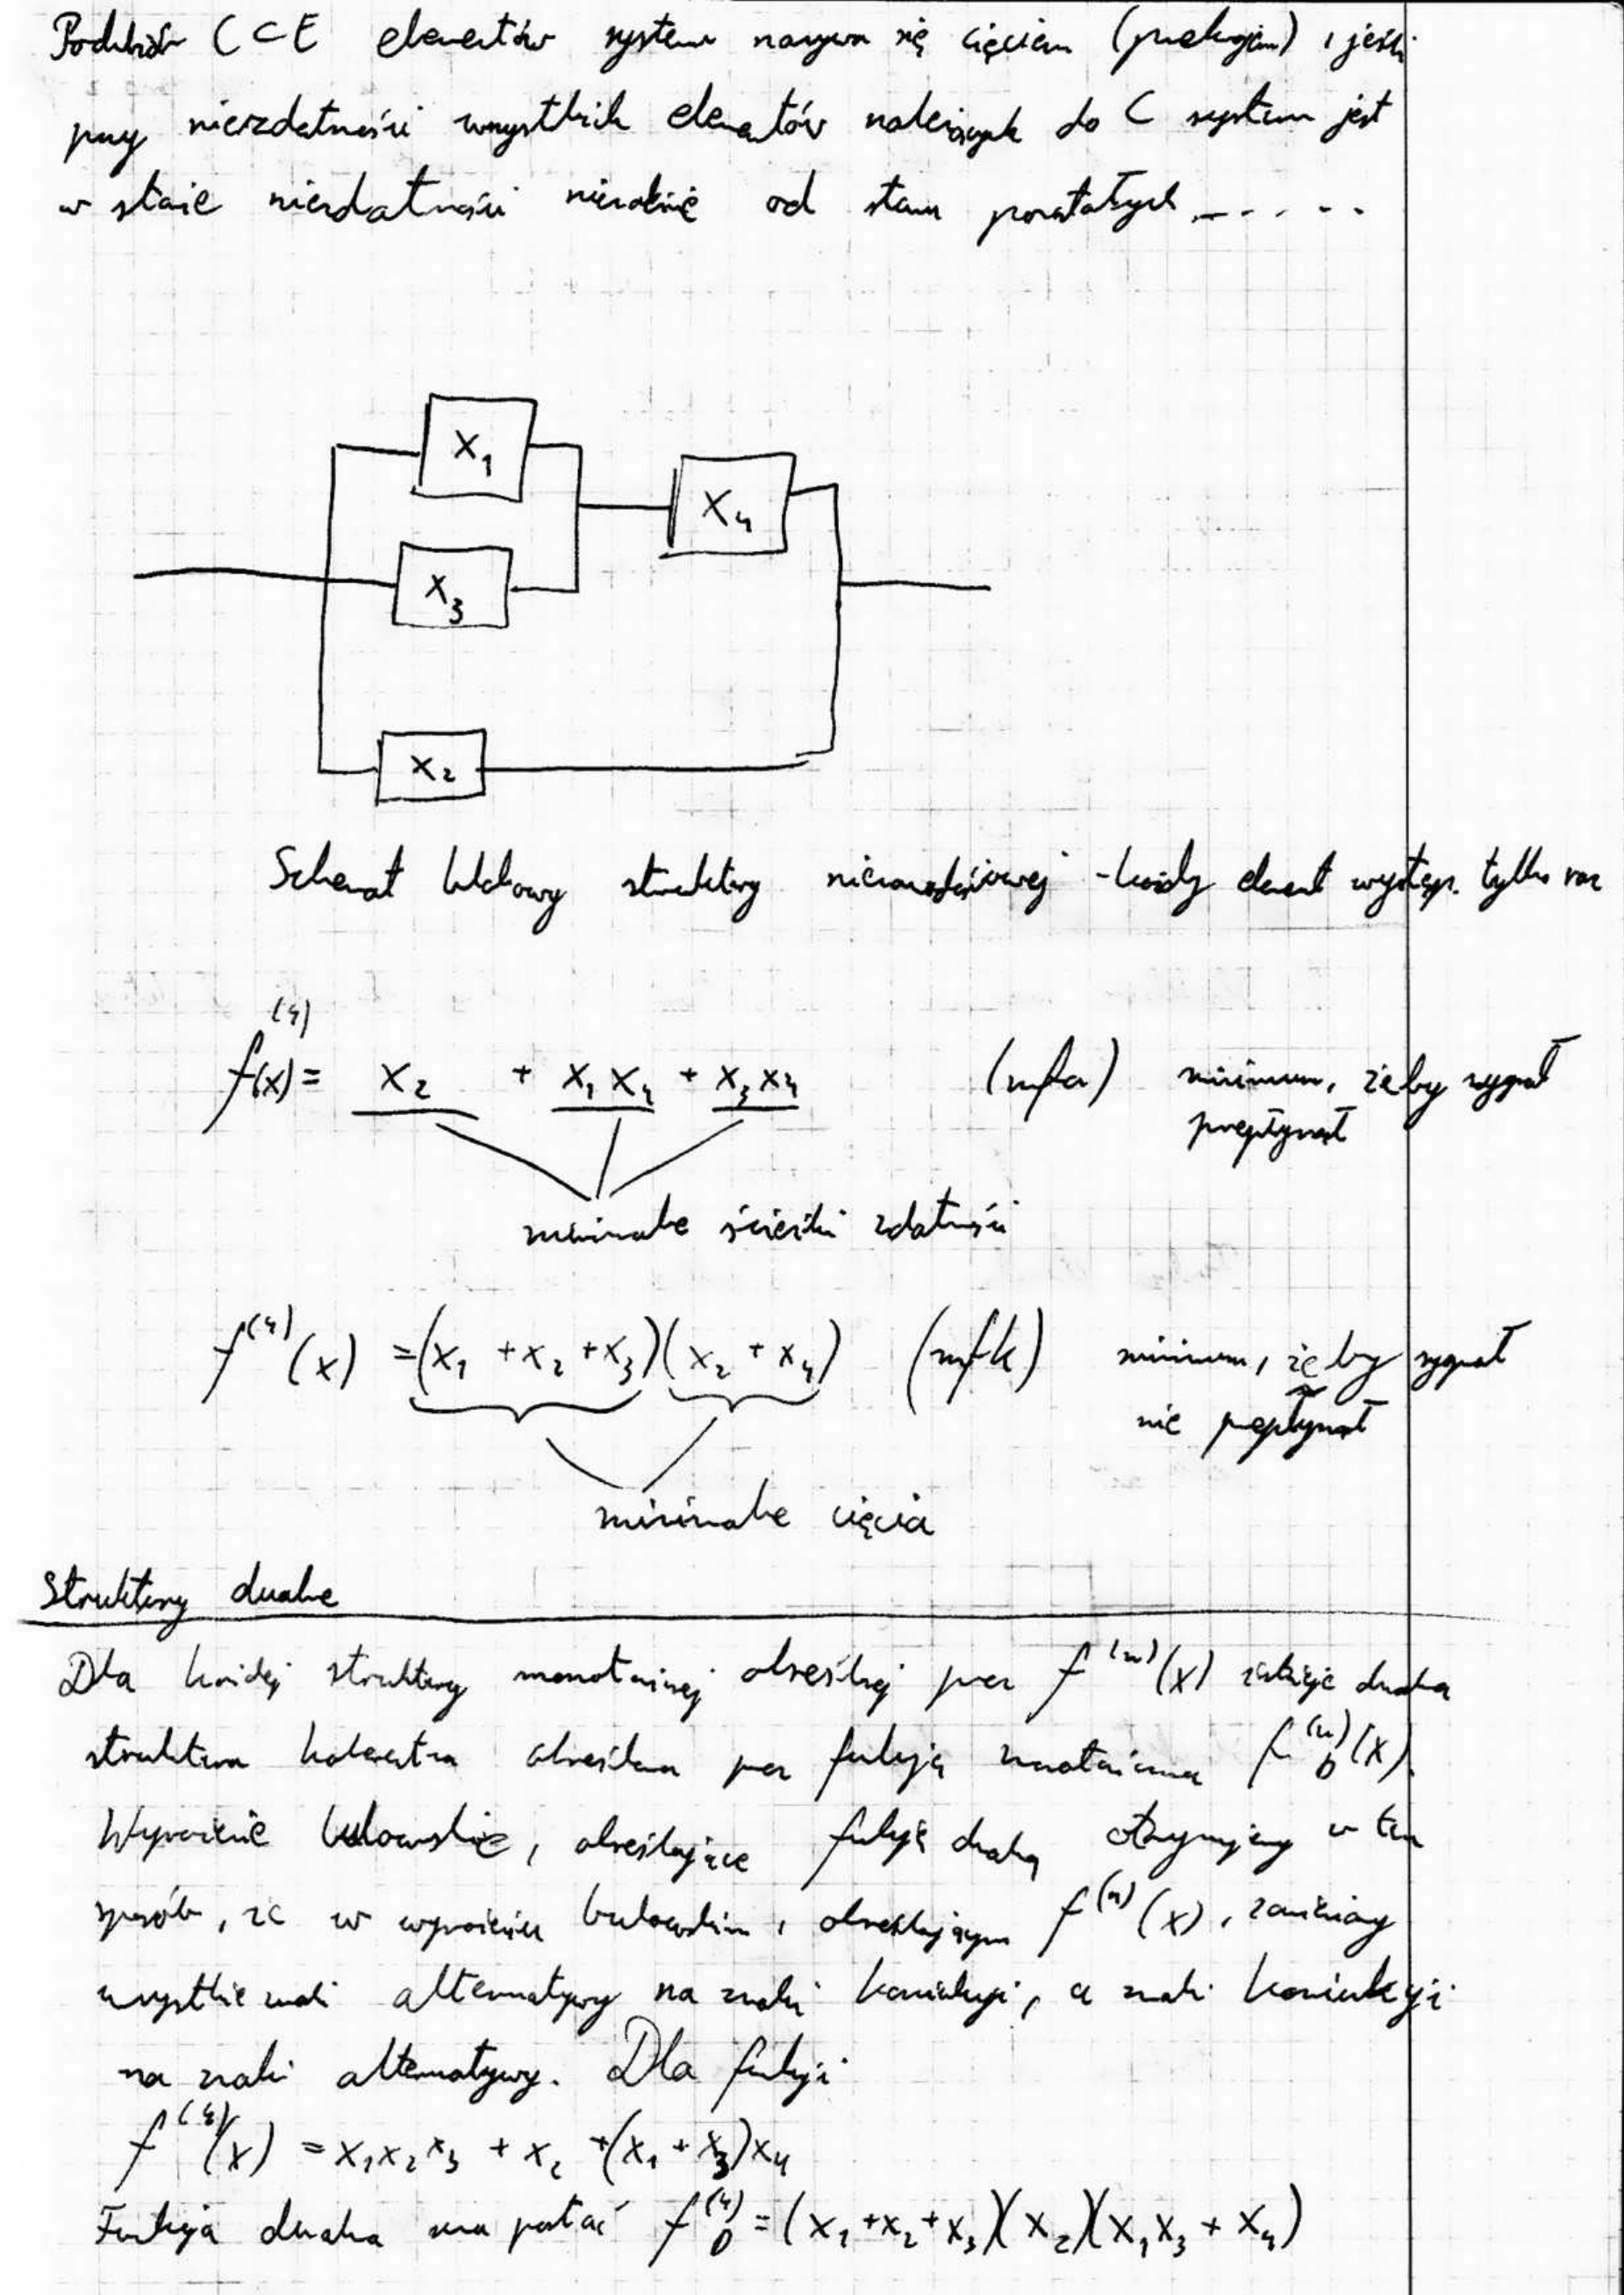 Podzbiór C ⊂ E elementów systemu nazywa się cięciem (przekrojem), jeśli
przy niezdatności wszystkich elementów należących do C system jest
w stanie niezdatności niezależnie od stanu pozostałych -----
X₁
X₄
X₃
X₂
Schemat blokowy struktury - każdy element występ. tylko raz
f⁽⁴⁾(x) = x₂ + x₁x₄ + x₃x₄ (mfa) minimum, żeby sygnał
przepłynął
minimalne ścieżki zdatności
f⁽⁴⁾(x) = (x₁ + x₂ + x₃)(x₂ + x₄) (mfk) minimum, żeby sygnał
nie przepłynął
minimalne cięcia
Struktury dualne
Dla każdej struktury monotonicznej określonej przez f⁽ⁿ⁾(x) istnieje dualna
struktura koherentna określona przez funkcję monotoniczną f_D⁽ⁿ⁾(x).
Wyrażenie boolowskie, określające funkcję dualną otrzymujemy w ten
sposób, że w wyrażeniu boolowskim, określającym f⁽ⁿ⁾(x), zamieniamy
wszystkie znaki alternatywy na znaki koniunkcji, a znaki koniunkcji
na znaki alternatywy. Dla funkcji
f⁽⁴⁾(x) = x₁x₂x₃ + x₂ + (x₁ + x₃)x₄
Funkcja dualna ma postać f_D⁽⁴⁾ = (x₁ + x₂ + x₃)(x₂)(x₁x₃ + x₄)